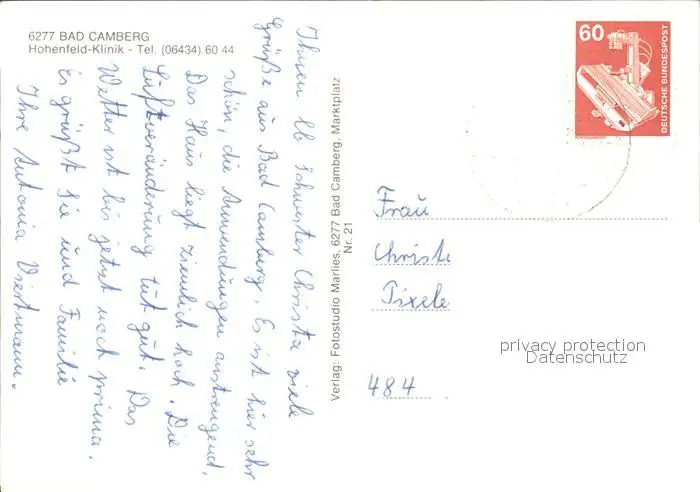 6277 BAD CAMBERG
Hohenfeld-Klinik - Tel. (06434) 60 44
Ihnen lb Schwester Christa viele
Grüße aus Bad Camberg. Es ist hier sehr
schön, die Anwendungen anstrengend.
Das Haus liegt ziemlich hoch. Die
Luftveränderung tut gut. Das
Wetter ist bis jetzt noch prima.
Es grüßt Sie und Familie
Ihre Antonia Viertmann.
Verlag: Fotostudio Marlies, 6277 Bad Camberg, Marktplatz
Nr. 21
60
DEUTSCHE BUNDESPOST
Frau
Christ
Pixele
484
privacy protection
Datenschutz